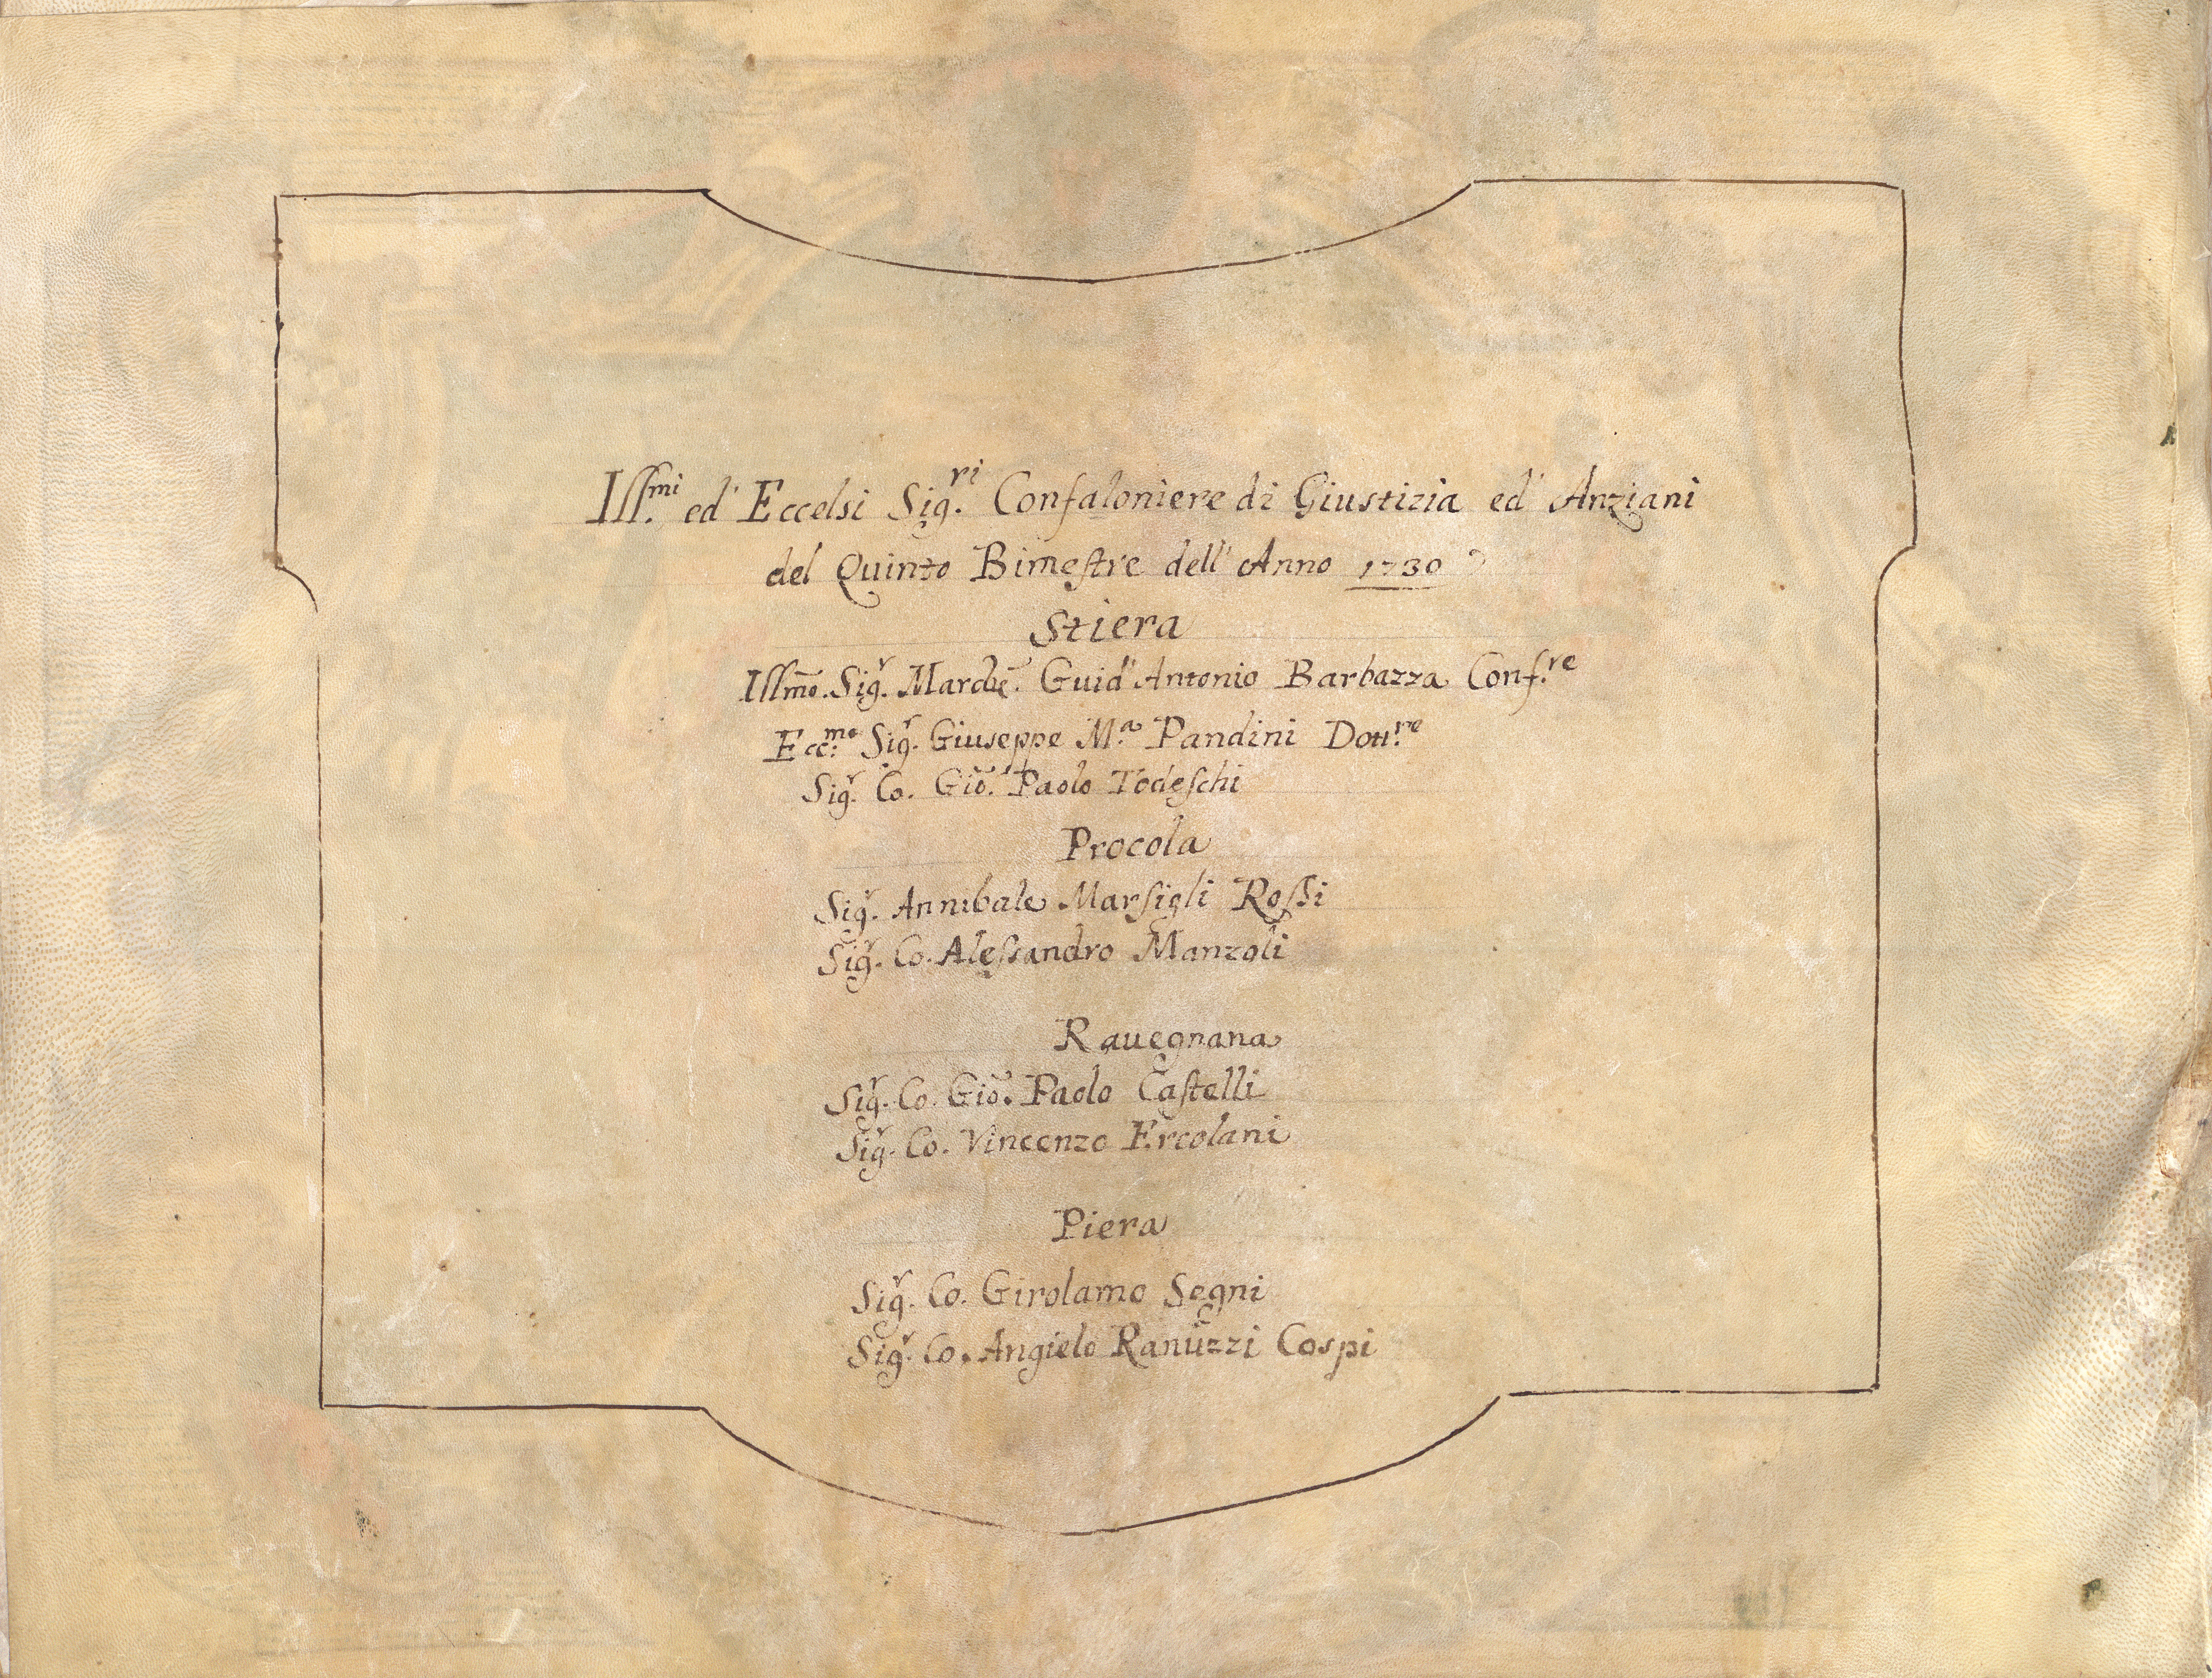 Ill.mi ed' Eccelsi Sig.ri Confaloniere di Giustizia ed' Anziani
del Quinto Bimestre dell' Anno 1730
Stiera
Illmo. Sigr. Marche. Guid' Antonio Barbazza Conf.re
Ecc.mo Sigr. Giuseppe M.a Pandini Dott.re
Sigr. Co. Gio. Paolo Todeschi
Procola
Sigr. Annibale Marsigli Rossi
Sigr. Co. Alessandro Manzoli
Rauegnana
Sigr. Co. Gio. Paolo Castelli
Sigr. Co. Vincenzo Ercolani
Piera
Sigr. Co. Girolamo Segni
Sigr. Co. Angielo Ranuzzi Cospi